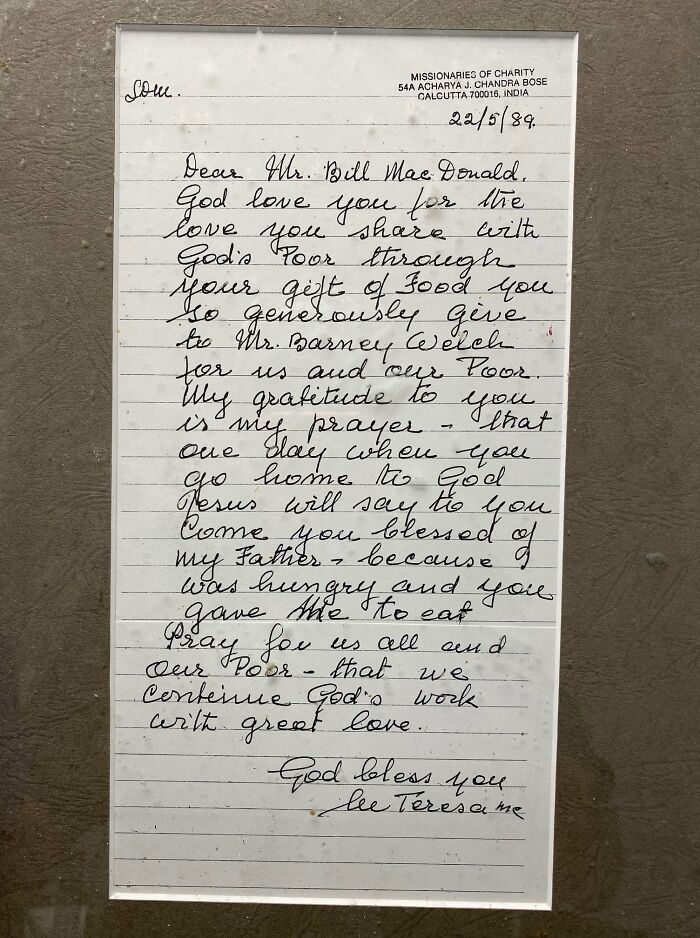 LDM.
MISSIONARIES OF CHARITY
54A ACHARYA J. CHANDRA BOSE
CALCUTTA 700016, INDIA
22/5/89.
Dear Mr. Bill Mac Donald.
God love you for the
love you share with
God's Poor through
your gift of Food you
so generously give
to Mr. Barney Welch
for us and our Poor.
My gratitude to you
is my prayer - that
one day when you
go home to God
Jesus will say to you
Come you blessed of
my Father - because I
was hungry and you
gave Me to eat
Pray for us all and
our Poor - that we
continue God's work
with great love.
God bless you
lee Teresa mc